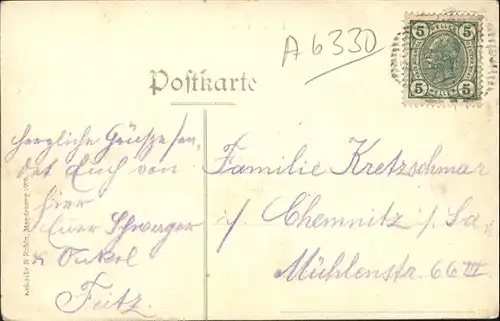 A 6330
5 5
5 5
Postkarte
Herzliche Grüsze sen
det Euch von
hier
Euer Schwager
& Onkel
Fritz.
Familie Kretzschmar
i/ Chemnitz i/ Sa
Mühlenstr. 66 III